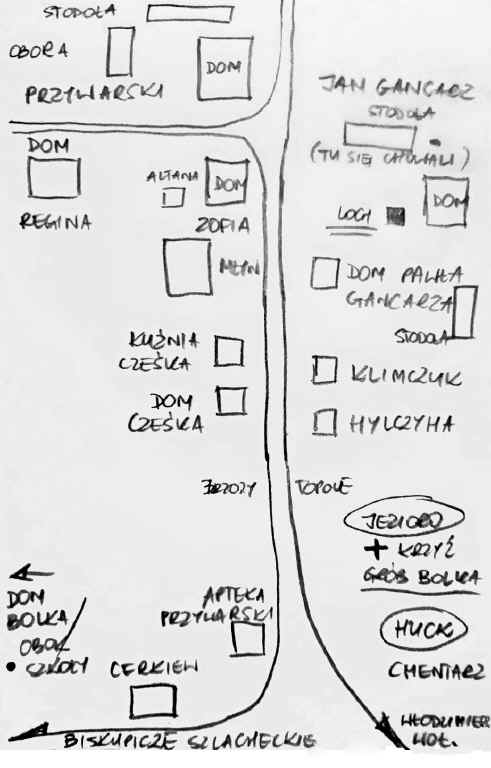 STODOŁA
OBORA
DOM
PRZYWARSKI
JAN GANCARZ
STODOŁA
(TU SIĘ CHOWALI)
DOM
ALTANA
DOM
DOM
LOCH
REGINA
ZOFIA
MŁYN
DOM PAWŁA
GANCARZA
STODOŁA
KUŹNIA
CZEŚKA
KLIMCZUK
DOM
CZEŚKA
HYLCZYHA
BRZOZY
TOPOLE
JEZIORO
+ KRZYŻ
GRÓB BOLKA
DOM
BOLKA
OBOK
• SZKOŁY
APTEKA
PRZYWARSKI
HUCK
CERKIEW
CMENTARZ
WŁODZIMIERZ
WOŁ.
BISKUPICZE SZLACHECKIE